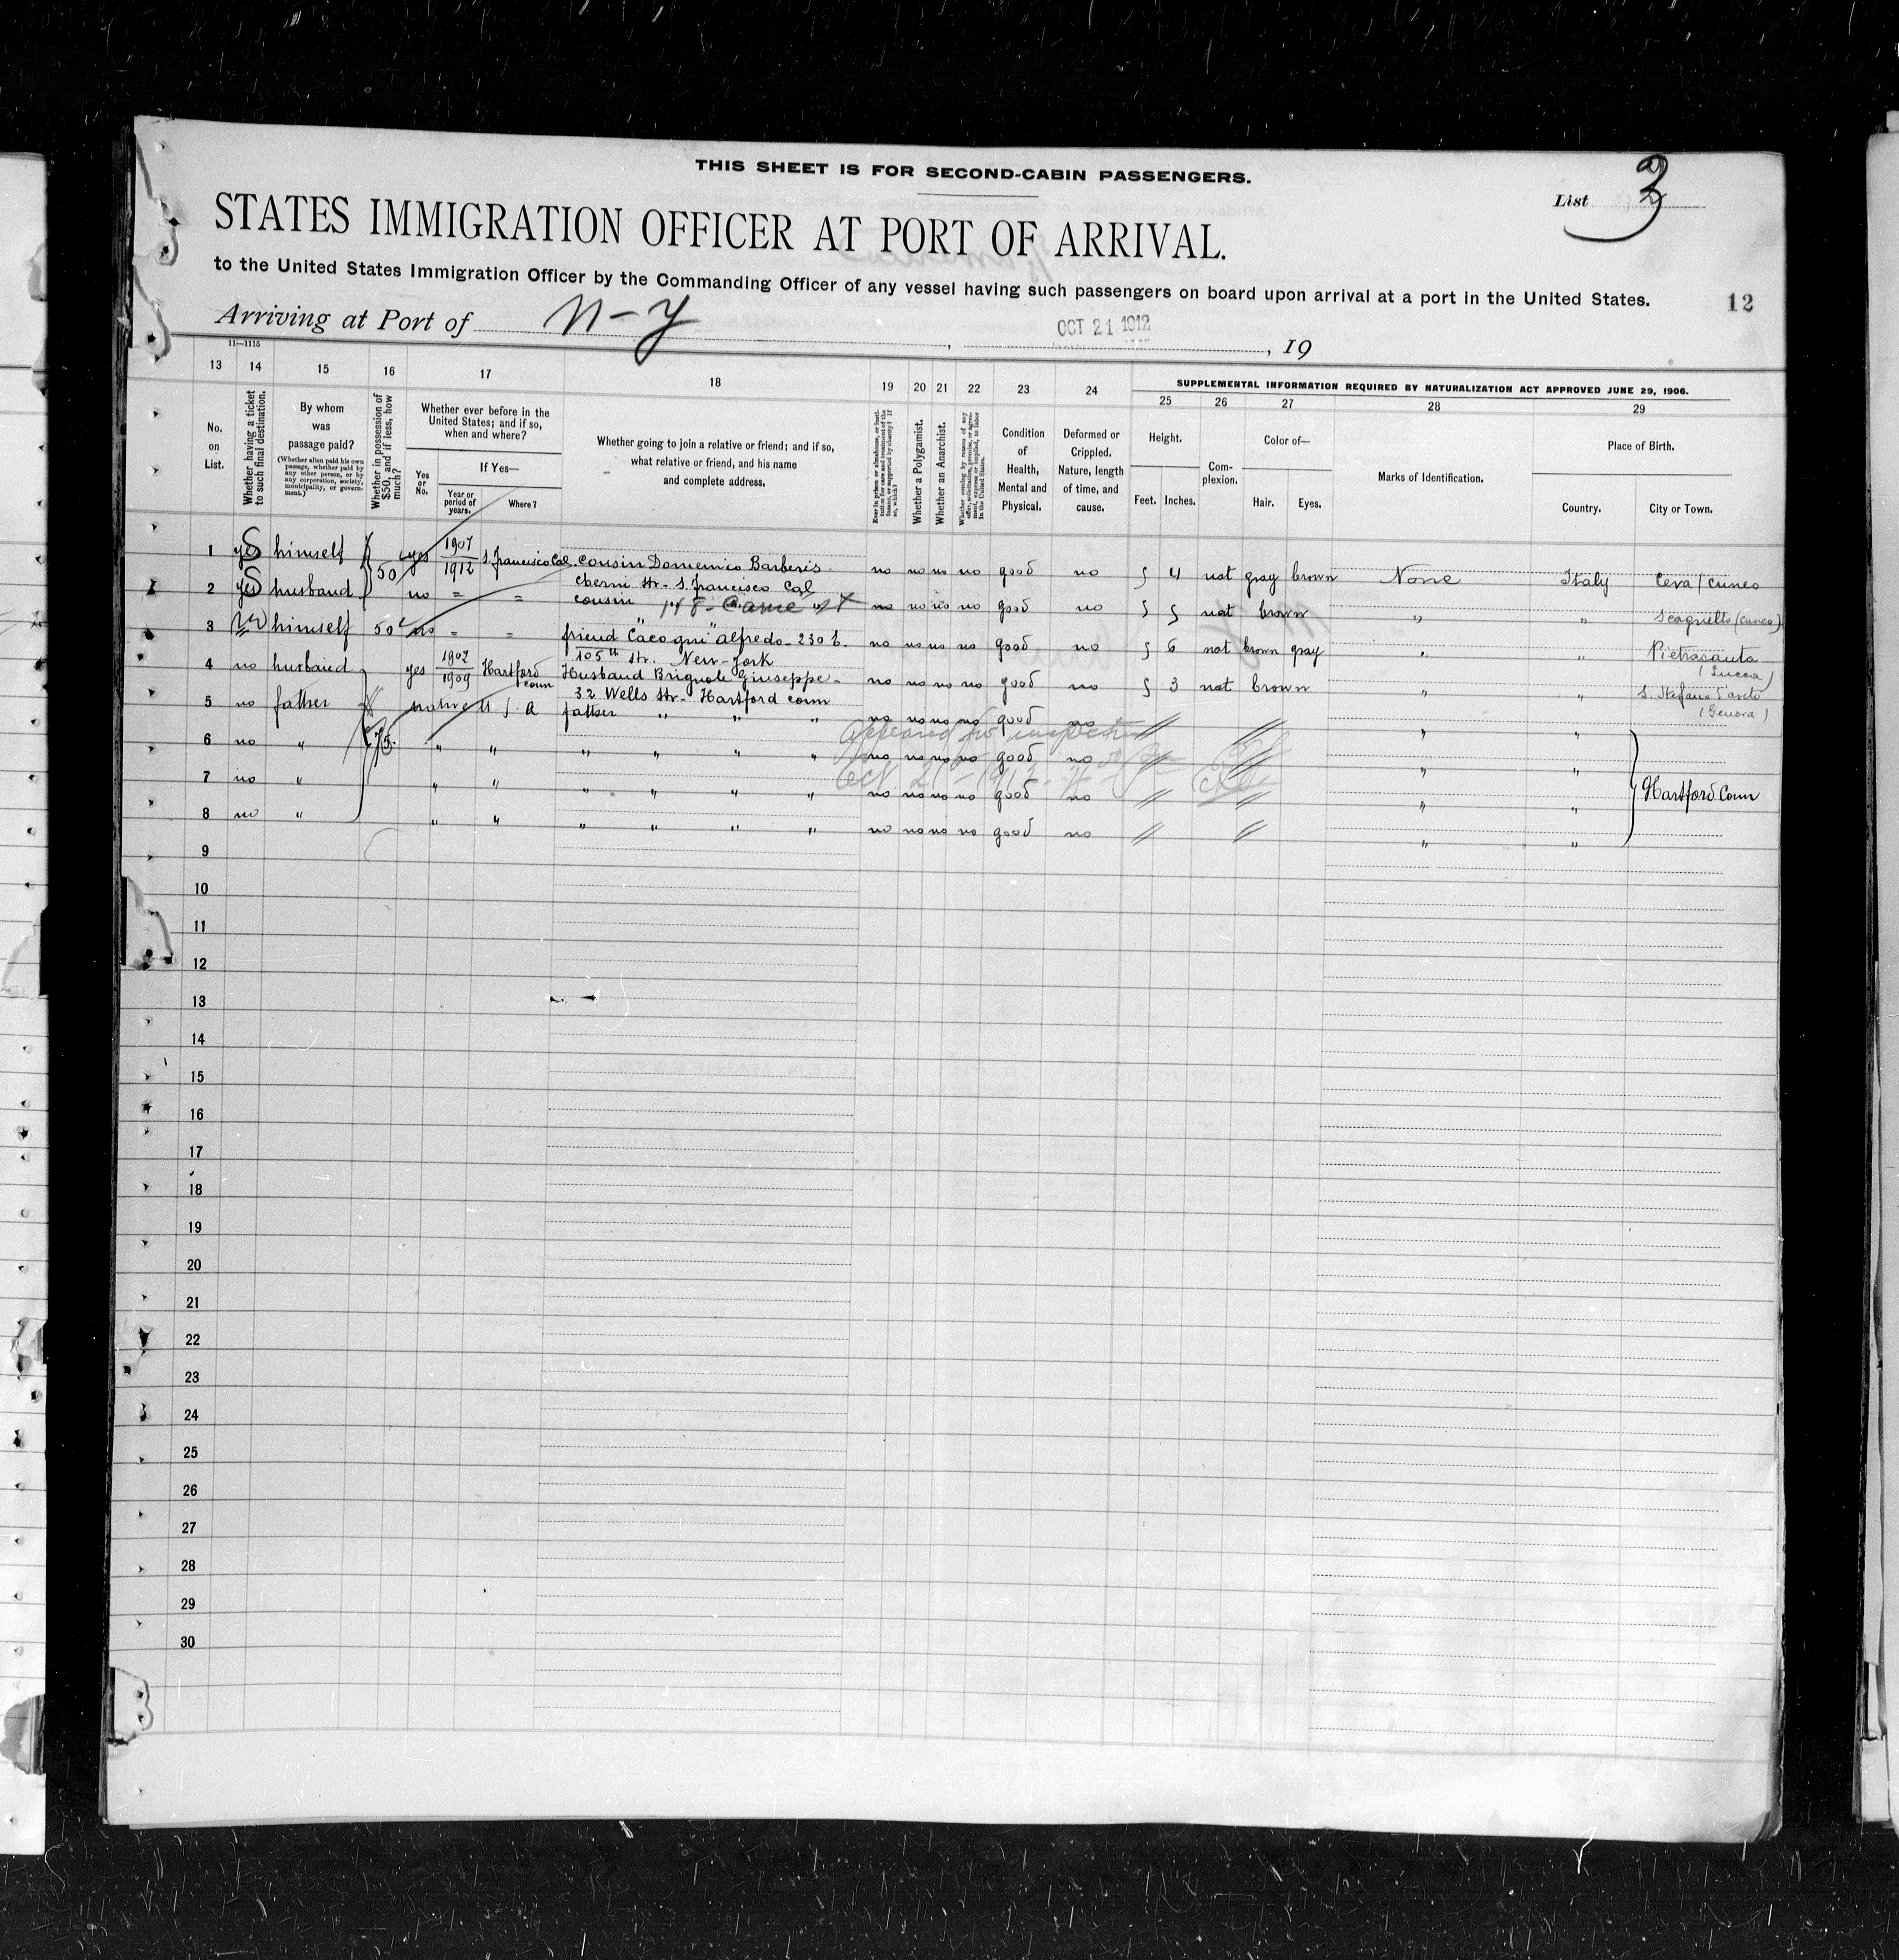 THIS SHEET IS FOR SECOND-CABIN PASSENGERS.
List 3
STATES IMMIGRATION OFFICER AT PORT OF ARRIVAL.
to the United States Immigration Officer by the Commanding Officer of any vessel having such passengers on board upon arrival at a port in the United States.
12
Arriving at Port of N-Y, OCT 21 1912, 19
11—1115
13 14 15 16 17 18 19 20 21 22 23 24
SUPPLEMENTAL INFORMATION REQUIRED BY NATURALIZATION ACT APPROVED JUNE 29, 1906.
25 26 27 28 29
No. on List.
Whether having a ticket to such final destination.
By whom was passage paid?
(Whether alien paid his own passage, whether paid by any other person, or by any corporation, society, municipality, or government.)
Whether in possession of $50, and if less, how much?
Whether ever before in the United States; and if so, when and where?
Yes or No.
If Yes—
Year or period of years.
Where?
Whether going to join a relative or friend; and if so, what relative or friend, and his name and complete address.
Ever in prison or almshouse, or institution for care and treatment of the insane, or supported by charity? If so, which?
Whether a Polygamist.
Whether an Anarchist.
Whether coming by reason of any offer, solicitation, promise, or agreement, express or implied, to labor in the United States.
Condition of Health, Mental and Physical.
Deformed or Crippled. Nature, length of time, and cause.
Height.
Feet. Inches.
Complexion.
Color of—
Hair. Eyes.
Marks of Identification.
Place of Birth.
Country. City or Town.
1 yes himself 50 yes 1907 1912 S. Francisco Cal. cousin Domenico Barberis no no no no good no 5 4 nat gray brown None Italy Ceva (Cuneo
2 yes husband no = = str. S. Francisco Cal
cousin " " no no no no good no 5 5 nat brown " " (Cuneo)
3 himself 50 no = = friend Alfredo - 230 E. no no no no good no 5 6 nat brown gray " " Pietrasanta
105th Str. New-York (Lucca)
4 no husband yes 1902 1909 Hartford conn Husband Brignole Giuseppe - no no no no good no 5 3 nat brown " " S. Stefano d'aveto
32 Wells Str. Hartford conn (Genova)
5 no father 75. native U S A father " " " no no no no good no " "
Appeared for inspection
6 no " " " " " " " no no no no good no " "
Oct. 21 - 1912
7 no " " " " " " " no no no no good no " " Hartford Conn
8 no " " " " " " " no no no no good no " "
9
10
11
12
13
14
15
16
17
18
19
20
21
22
23
24
25
26
27
28
29
30